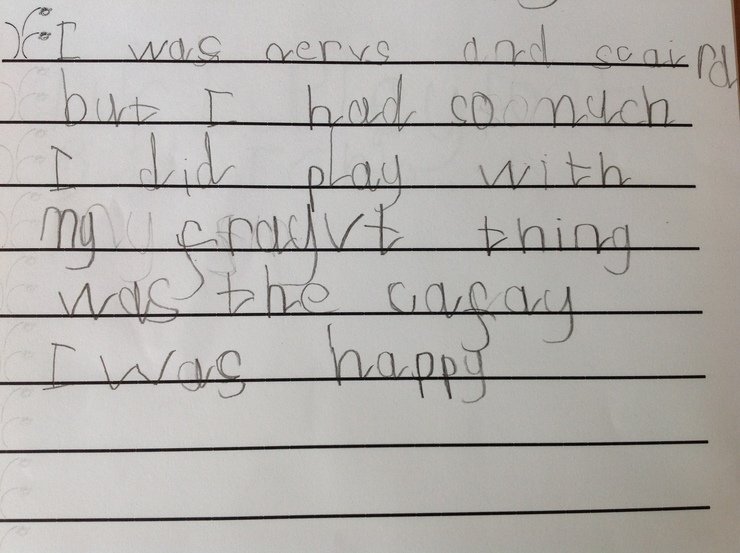 I was nervs and scaird
but I had so much
I did play with
my frayvt thing
was the cafay
I was happy